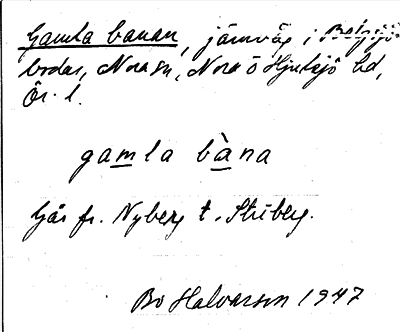 Gamla banan, järnväg i Betsjö-
bodar, Nora sn, Nora o Hjulsjö hd,
Ör. l.
gamla bàna
Går fr. Nyberg t. Striberg.
Bo Halvarson 1947